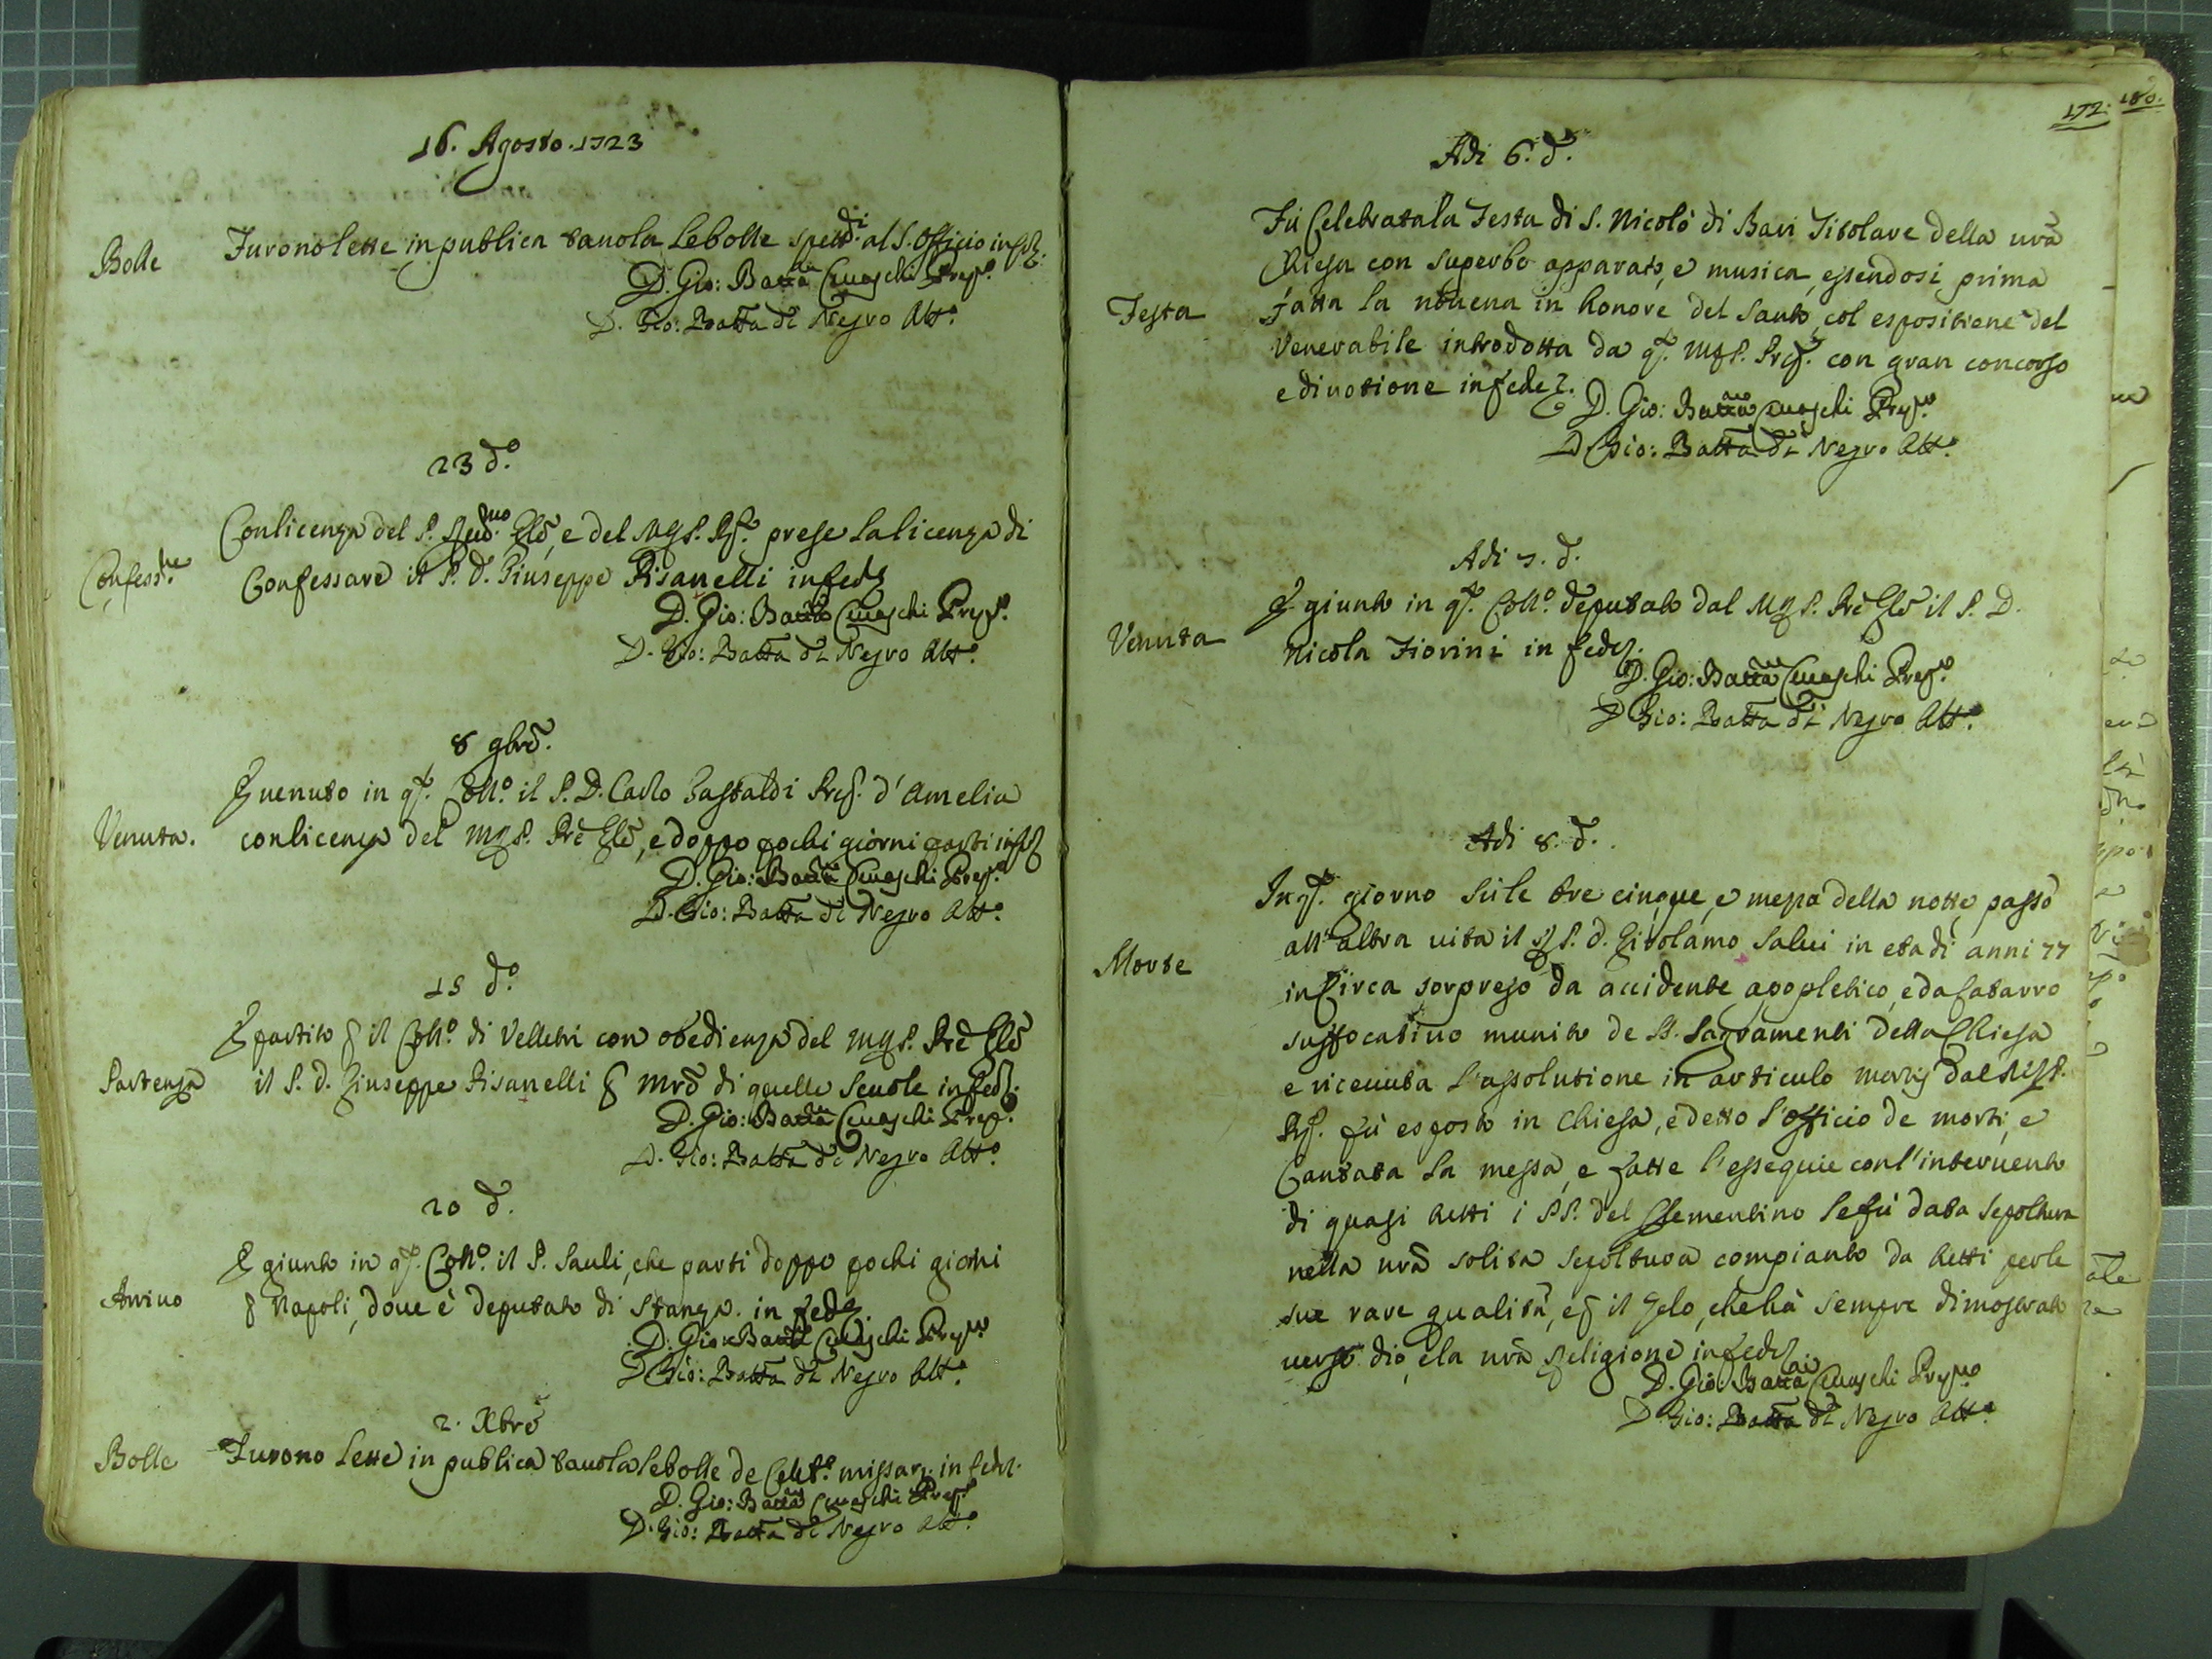 16. Agosto. 1723
Bolle
Furono lette in publica tauola le bolle spett.di al S. Officio in fed.
D. Gio: Batta Ceuaschi Prep.to
D. Gio: Batta di Negro Att.o
23 d.o
Confess.ne
Con licenza del P. Glē, e del M.R.P. prese la licenza di
Confessare il P. D. Giuseppe Pisanelli in fede
D. Gio: Batta Ceuaschi Prep.to
D. Gio: Batta di Negro Att.o
8 9brē.
Venuta.
È uenuto in q.to Coll.o il P. D. Carlo Gastaldi Prep. d'Amelia
con licenza del M.R.P. Prē Glē, e doppo pochi giorni partì in fed
D. Gio: Batta Ceuaschi Prep.to
D. Gio: Batta di Negro Att.o
15 d.o
Partenza
È partito p il Coll.o di Velletri con obedienza del M.R.P. Prē Glē
il P. D. Giuseppe Pisanelli p Mrō di quelle Scuole in fed.
D. Gio: Batta Ceuaschi Prep.to
D. Gio: Batta di Negro Att.o
20 d.
Arriuo
È giunto in q.to Coll.o il P. Sauli, che partì doppo pochi giorni
p Napoli, doue è deputato di stanza. in fede.
D. Gio: Batta Ceuaschi Prep.to
D. Gio: Batta di Negro Att.o
2. Xbrē
Bolle
Furono lette in publica tauola le bolle de Celeb.e missar. in fed.
D. Gio: Batta Ceuaschi Prep.to
D. Gio: Batta di Negro Att.o
172. 180.
Adi 6. d.
Festa
Fù Celebrata la Festa di S. Nicolò di Bari Titolare della nrā
Chiesa con superbo apparato, e musica, essendosi prima
fatta la nouena in honore del Santo, col espositione del
Venerabile introdotta da q.to M.R.P. Prep. con gran concorso
e diuotione in fede.
D. Gio: Batta Ceuaschi Prep.to
D. Gio: Batta di Negro Att.o
Adi 7. d.
Venuta
È giunto in q.to Coll.o deputato dal M.R.P. Prē Glē il P. D.
Nicola Fiorini in fede.
D. Gio: Batta Ceuaschi Prep.to
D. Gio: Batta di Negro Att.o
Adi 8. d.
Morte
In q.to giorno sù le ore cinque, e mezza della notte passò
all'altra uita il P. D. Girolamo Salui in età di anni 77
in circa sorpreso da accidente apopletico, e da catarro
suffocatiuo munito de SS. Sacramenti della Chiesa
e riceuuta l'assolutione in articulo mortis dal M.R.P.
Prep. fù esposto in Chiesa, e detto l'officio de morti, e
Cantata la messa, e fatte l'essequie con l'interuento
di quasi tutti i PP. del Clementino le fù data sepoltura
nella nrā solita sepoltura compianto da tutti per le
sue rare qualità, e p il Zelo, che hà sempre dimostrato
uerso dio, e la nrā Religione in fede.
D. Gio: Batta Ceuaschi Prep.to
D. Gio: Batta di Negro Att.o